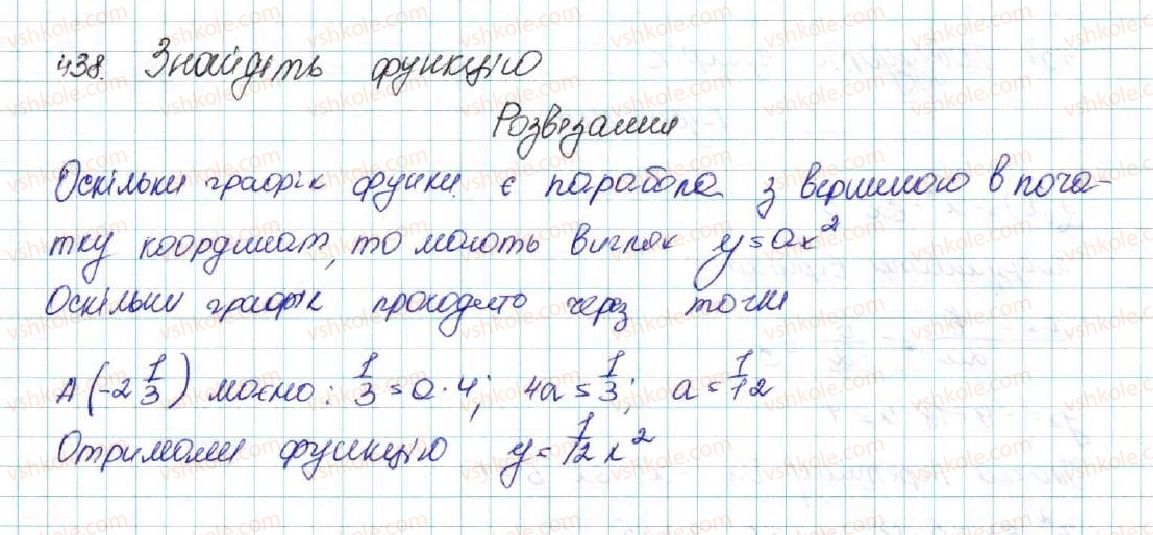 438. Знайдіть функцію
Розвязання
Оскільки графік функ. є парабола з вершиною в поча-
тку координат, то мають вигляк y = ax²
Оскільки графік проходить через точки
A (-2 1/3) маємо: 1/3 = a · 4; 4a = 1/3; a = 1/12
Отримали функцію y = 1/12 x²